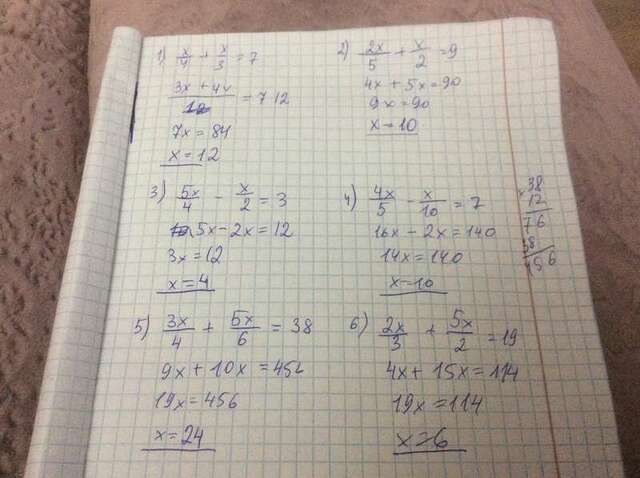 1) x/4 + x/3 = 7
3x + 4x / 12 = 7 12
7x = 84
x = 12
2) 2x/5 + x/2 = 9
4x + 5x = 90
9x = 90
x = 10
3) 5x/4 - x/2 = 3
5x - 2x = 12
3x = 12
x = 4
4) 4x/5 - x/10 = 7
16x - 2x = 140
14x = 140
x = 10
38
× 12
76
38
456
5) 3x/4 + 5x/6 = 38
9x + 10x = 454
19x = 456
x = 24
6) 2x/3 + 5x/2 = 19
4x + 15x = 114
19x = 114
x = 6